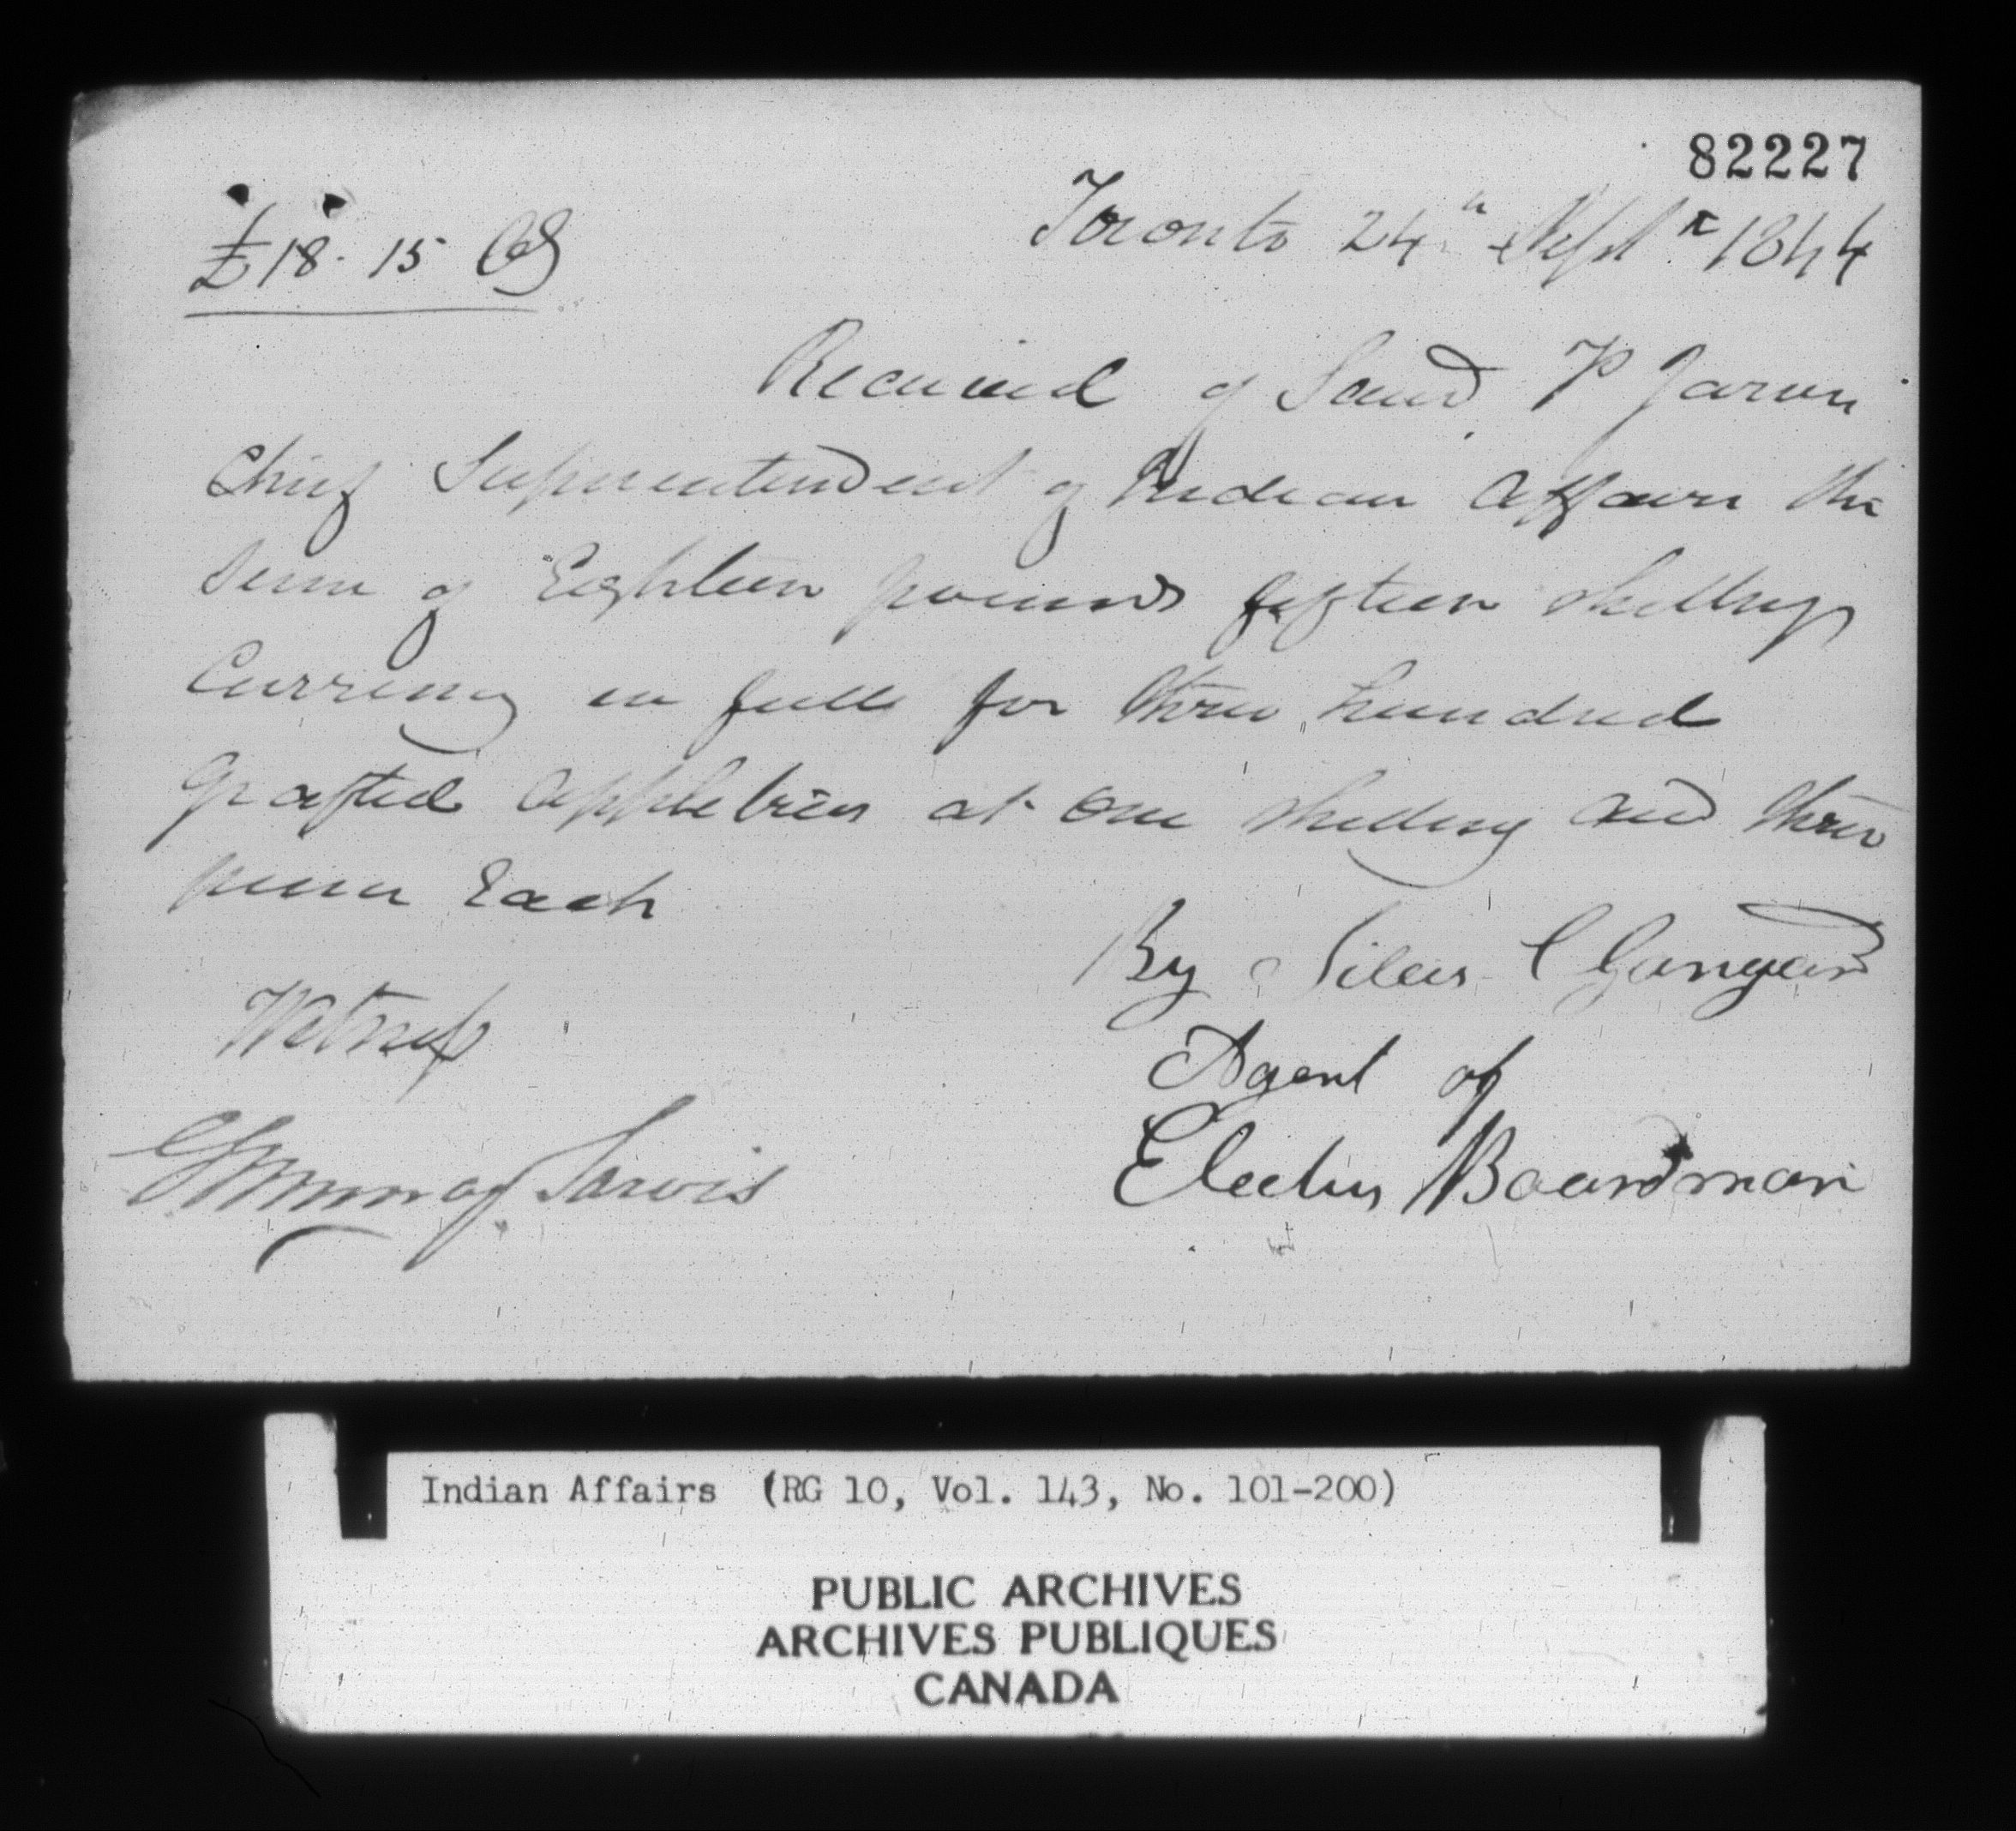 82227
Toronto 24th Septr 1844
£18. 15 Cy
Received of Saml P Jarvis
Chief Superintendent of Indian Affairs the
sum of Eighteen pounds fifteen shillings
Currency in full for three hundred
grafted apple trees at one shilling and three
pence Each
By Silas C
Agent of
Electus Boardman
Witness
Jarvis
Indian Affairs (RG 10, Vol. 143, No. 101-200)
PUBLIC ARCHIVES
ARCHIVES PUBLIQUES
CANADA